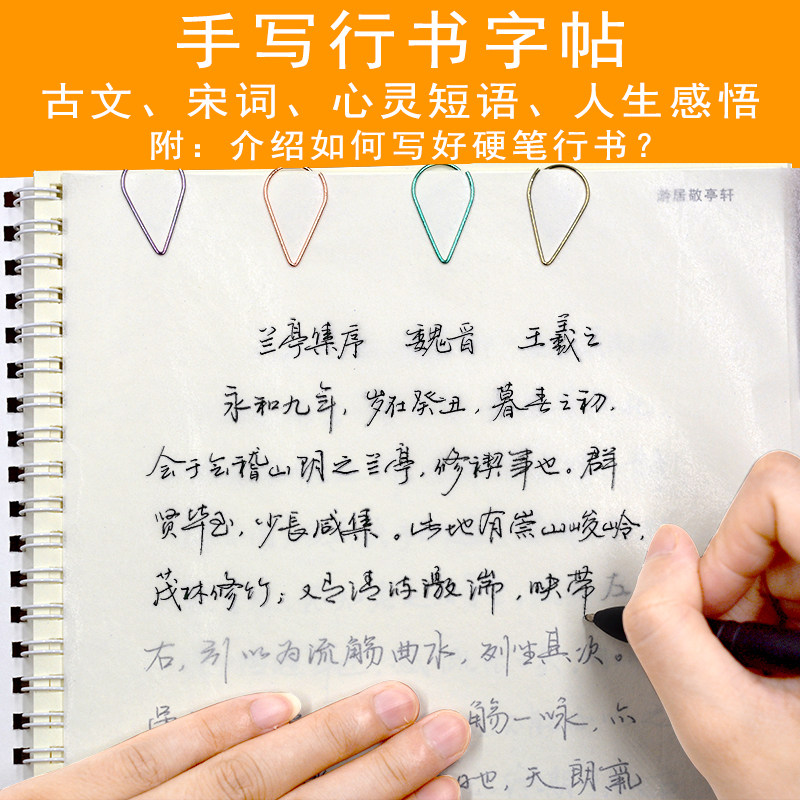 手写行书字帖
古文、宋词、心灵短语、人生感悟
附：介绍如何写好硬笔行书？
游居敬亭轩
兰亭集序 魏晋 王羲之
永和九年，岁在癸丑，暮春之初，
会于会稽山阴之兰亭，修禊事也。群
贤毕至，少長咸集。此地有崇山峻岭，
茂林修竹；又有清流激湍，映带左
右，引以为流觞曲水，列坐其次。
觞一咏，亦
也，天朗氣